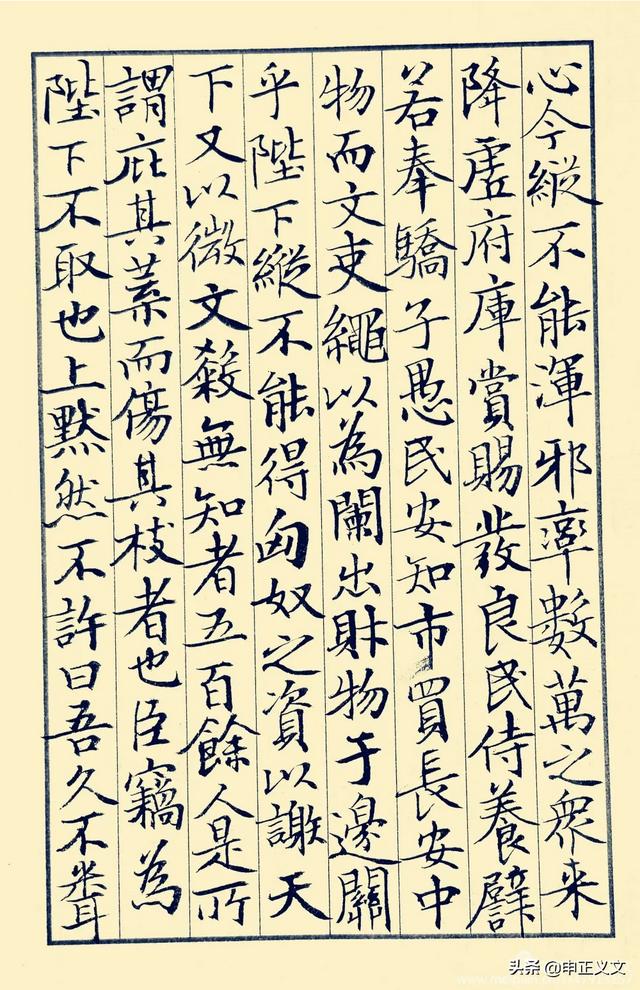 心今縱不能渾邪率數萬之衆来
降虛府庫賞賜發良民侍養譬
若奉驕子愚民安知市買長安中
物而文吏繩以為闌出財物于邊關
乎陛下縱不能得匈奴之資以謝天
下又以微文殺無知者五百餘人是所
謂庇其葉而傷其枝者也臣竊為
陛下不取也上默然不許曰吾久不聞
头条 @申正义文